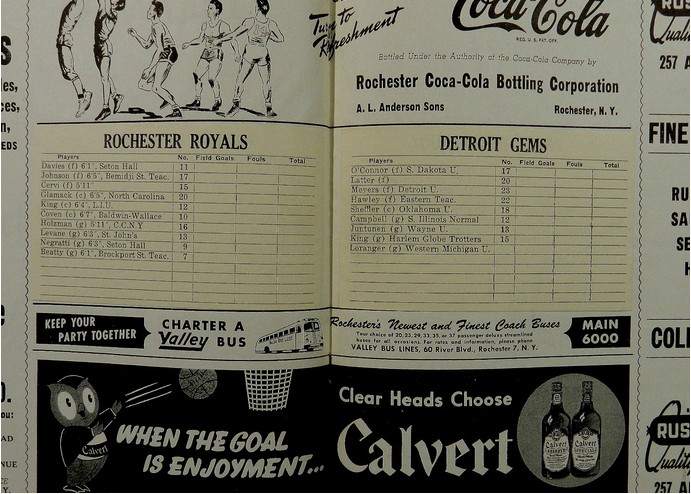 Turn to
Refreshment
Coca-Cola
REG. U. S. PAT. OFF.
Bottled Under the Authority of the Coca-Cola Company by
Rochester Coca-Cola Bottling Corporation
A. L. Anderson Sons Rochester, N. Y.
ROCHESTER ROYALS
Players No. Field Goals Fouls Total
Davies (f) 6'1", Seton Hall 11
Johnson (f) 6'5", Bemidji St. Teac. 17
Cervi (f) 5'11" 15
Glamack (c) 6'5", North Carolina 20
King (c) 6'4", L.I.U. 12
Coven (c) 6'7", Baldwin-Wallace 10
Holzman (g) 5'11", C.C.N.Y 16
Levane (g) 6'3", St. John's 13
Negratti (g) 6'3", Seton Hall 9
Beatty (g) 6'1", Brockport St. Teac. 7
DETROIT GEMS
Players No. Field Goals Fouls Total
O'Connor (f) S. Dakota U. 17
Latter (f) 20
Meyers (f) Detroit U. 23
Hawley (f) Eastern Teac. 22
Sheffler (c) Oklahoma U. 18
Campbell (g) S. Illinois Normal 12
Juntunen (g) Wayne U. 13
King (g) Harlem Globe Trotters 15
Loranger (g) Western Michigan U.
KEEP YOUR
PARTY TOGETHER
CHARTER A
Valley BUS
Rochester's Newest and Finest Coach Buses
Your choice of 20, 25, 29, 33, 35, or 37 passenger deluxe streamlined
buses for all occasions. For rates and information, please phone
VALLEY BUS LINES, 60 River Blvd., Rochester 7, N. Y.
MAIN
6000
Calvert
WHEN THE GOAL
IS ENJOYMENT...
Clear Heads Choose
Calvert
Calvert
Calvert
257 A
FINE
RU
SA
SE
H
COLI
RUS
Quality
257 A